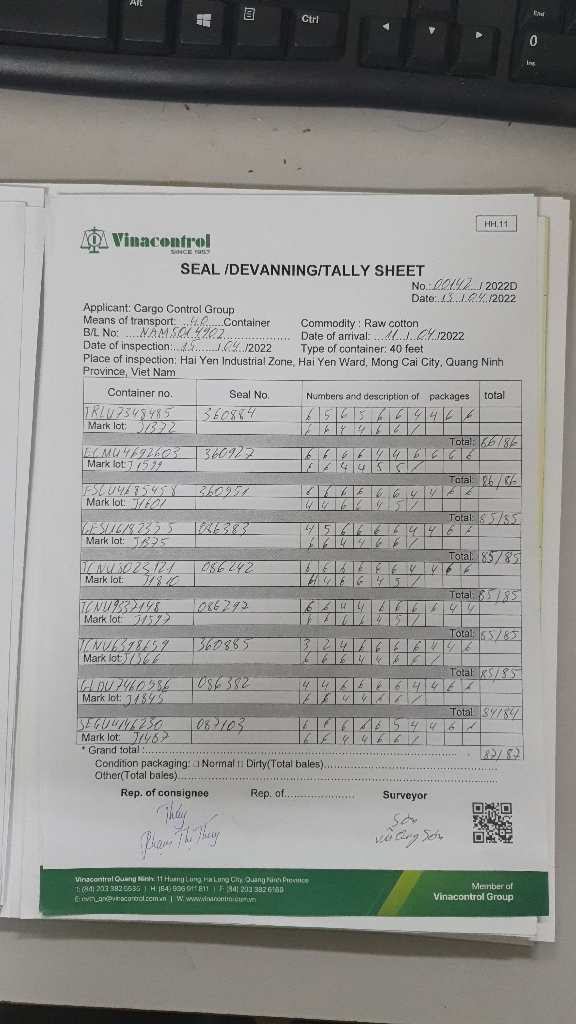 Alt
Ctrl
End
0
Ins
HH.11
Vinacontrol
SINCE 1957
SEAL /DEVANNING/TALLY SHEET
No.: 00142 / 2022D
Date: 13 / 04 /2022
Applicant: Cargo Control Group
Means of transport: 40 Container
Commodity : Raw cotton
B/L No: NAM5014902
Date of arrival: 11 / 04 /2022
Date of inspection: 13 / 04 /2022
Type of container: 40 feet
Place of inspection: Hai Yen Industrial Zone, Hai Yen Ward, Mong Cai City, Quang Ninh
Province, Viet Nam
Container no. Seal No. Numbers and description of packages total
TRLU7348485 360884 6 5 6 5 6 6 4 4 6 6
Mark lot: J1372 6 6 4 4 6 6 /
Total: 86/86
ECMU4692603 360927 6 6 6 6 4 4 6 6 6 6
Mark lot: J1599 6 6 4 4 5 5 /
Total: 86/86
FSCU4685458 360951 6 6 6 6 6 6 4 4 6 6
Mark lot: J1601 4 4 6 6 4 5 /
Total: 85/85
086383 4 5 6 6 6 6 4 4 6 6
Mark lot: J1375 6 6 4 4 6 6 /
Total: 85/85
TCNU3023121 086242 6 6 6 6 6 6 4 4 6 6
Mark lot: J1810 4 4 6 6 4 5 /
Total: 85/85
TCNU9337148 086292 6 6 4 4 6 6 6 6 4 4
Mark lot: J1597 6 6 6 6 4 5 /
Total: 85/85
TCNU6398659 360885 3 2 4 6 6 6 6 4 4 6
Mark lot: J1366 6 6 6 4 4 6 6 /
Total: 85/85
GLDU7460586 086382 4 4 6 6 6 6 4 4 6 6
Mark lot: J1845 6 6 4 4 6 6 /
Total: 84/84
SEGU4146230 087103 6 6 6 6 6 5 4 4 6 6
Mark lot: J1467 6 6 4 4 6 6 /
* Grand total : 87/87
Condition packaging: □ Normal □ Dirty(Total bales)
Other(Total bales)
Rep. of consignee Rep. of Surveyor
Thúy Sơn
Phạm Thị Thúy Vũ Sơn
Vinacontrol Quang Ninh: 11 Hoang Long, Ha Long City, Quang Ninh Province
T: (84) 203 382 5535 | H: (84) 936 911 811 | F: (84) 203 382 6169
E: nvth_qn@vinacontrol.com.vn | W: www.vinacontrol.com.vn
Member of
Vinacontrol Group